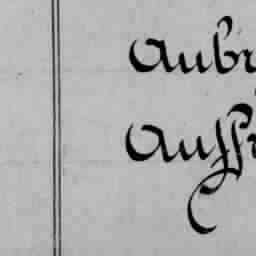 Aubr
Auffr